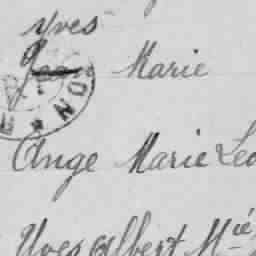 Yves
Jean Marie
Ange Marie Leo
Yves Albert Mié